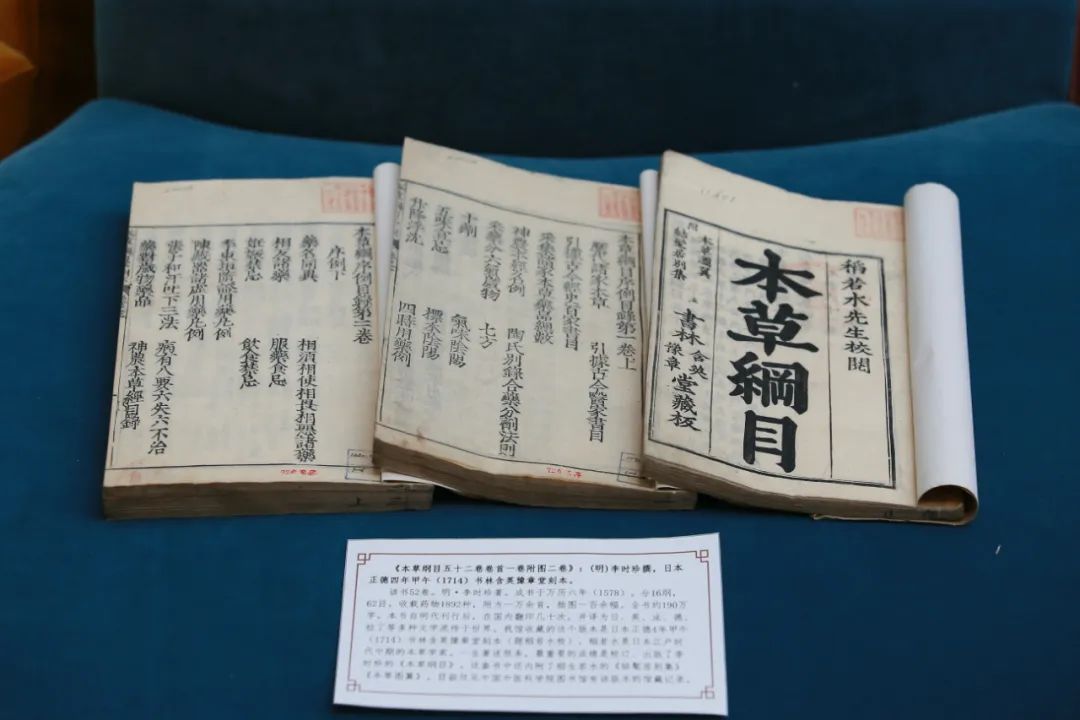 稻若水先生校閱
本草綱目
附
本草圖翼
結髦居別集
書林
含英
豫章
堂藏板
本草綱目序例目錄第一卷上
歷代諸家本草
引據古今醫家書目
引據古今經史百家書目
采集諸家本草藥品總數
神農本經名例
陶氏別錄合藥分劑法則
采藥分六氣歲物
七方
十劑
氣味陰陽
五味宜忌
標本陰陽
升降浮沈
四時用藥例
本草綱目序例目錄第二卷
序例下
藥名同異
相須相使相畏相惡諸藥
相反諸藥
服藥食忌
妊娠禁忌
飲食禁忌
李東垣隨證用藥凡例
陳藏器諸虛用藥凡例
張子和汗吐下三法
病有八要六失六不治
藥對歲物藥品
神農本草經目錄
《本草纲目五十二卷卷首一卷附图二卷》：(明)李时珍撰，日本
正德四年甲午（1714）书林含英豫章堂刻本。
该书52卷。明·李时珍著。成书于万历六年（1578）。分16纲，
62目，收载药物1892种，附方一万余首，插图一百余幅，全书约190万
字。本书自明代刊行后，在国内翻印几十次，并译为日、英、法、德、
拉丁等多种文字流传于世界。我馆收藏的这个版本是日本正德4年甲午
（1714）书林含英豫章堂刻本（题稻若水校）。稻若水是日本江户时
代中期的本草学家，一生著述很多，最重要的业绩是校订、出版了李
时珍的《本草纲目》。这套书中还内附了稻生若水的《结髦居别集》
《本草图翼》。目前仅见中国中医科学院图书馆有该版本的馆藏记录。